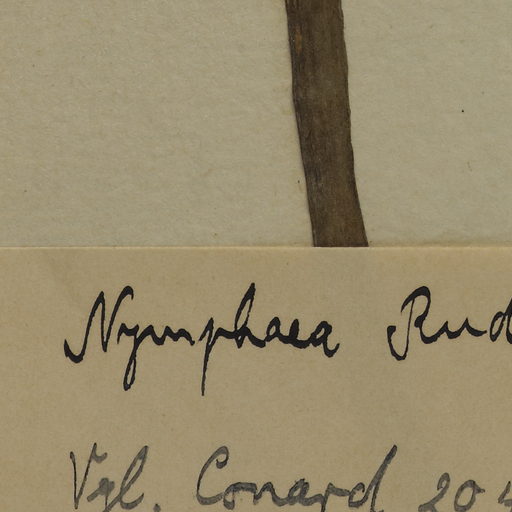 Nymphaea Rud
Vgl. Conard 204